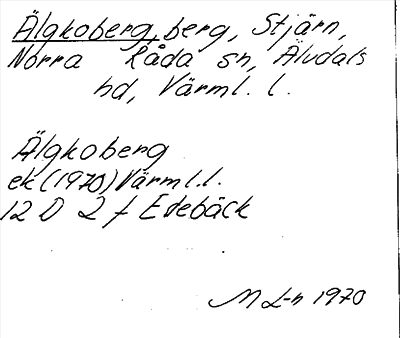 Älgkoberg, berg, Stjärn,
Norra Råda sn, Älvdals
hd, Värml. l.
Älgkoberg
ek (1970) Värml.l.
12 D 2 f Edebäck
M L-n 1970